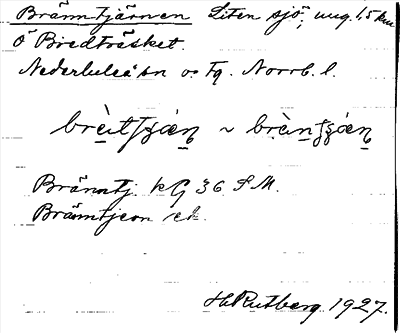 Bränntjärnen Liten sjö, ung. 1,5 km
Ö Bredträsket.
Nederluleå sn o. tg. Norrb. l.
Bränntj. kG 36 SM.
Bränntjern
H. Rutberg 1927.